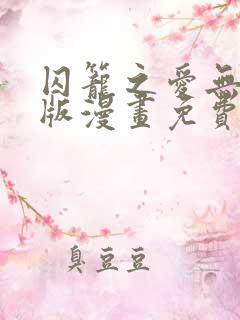 囚籠之愛無
版漫畫免費
臭豆豆